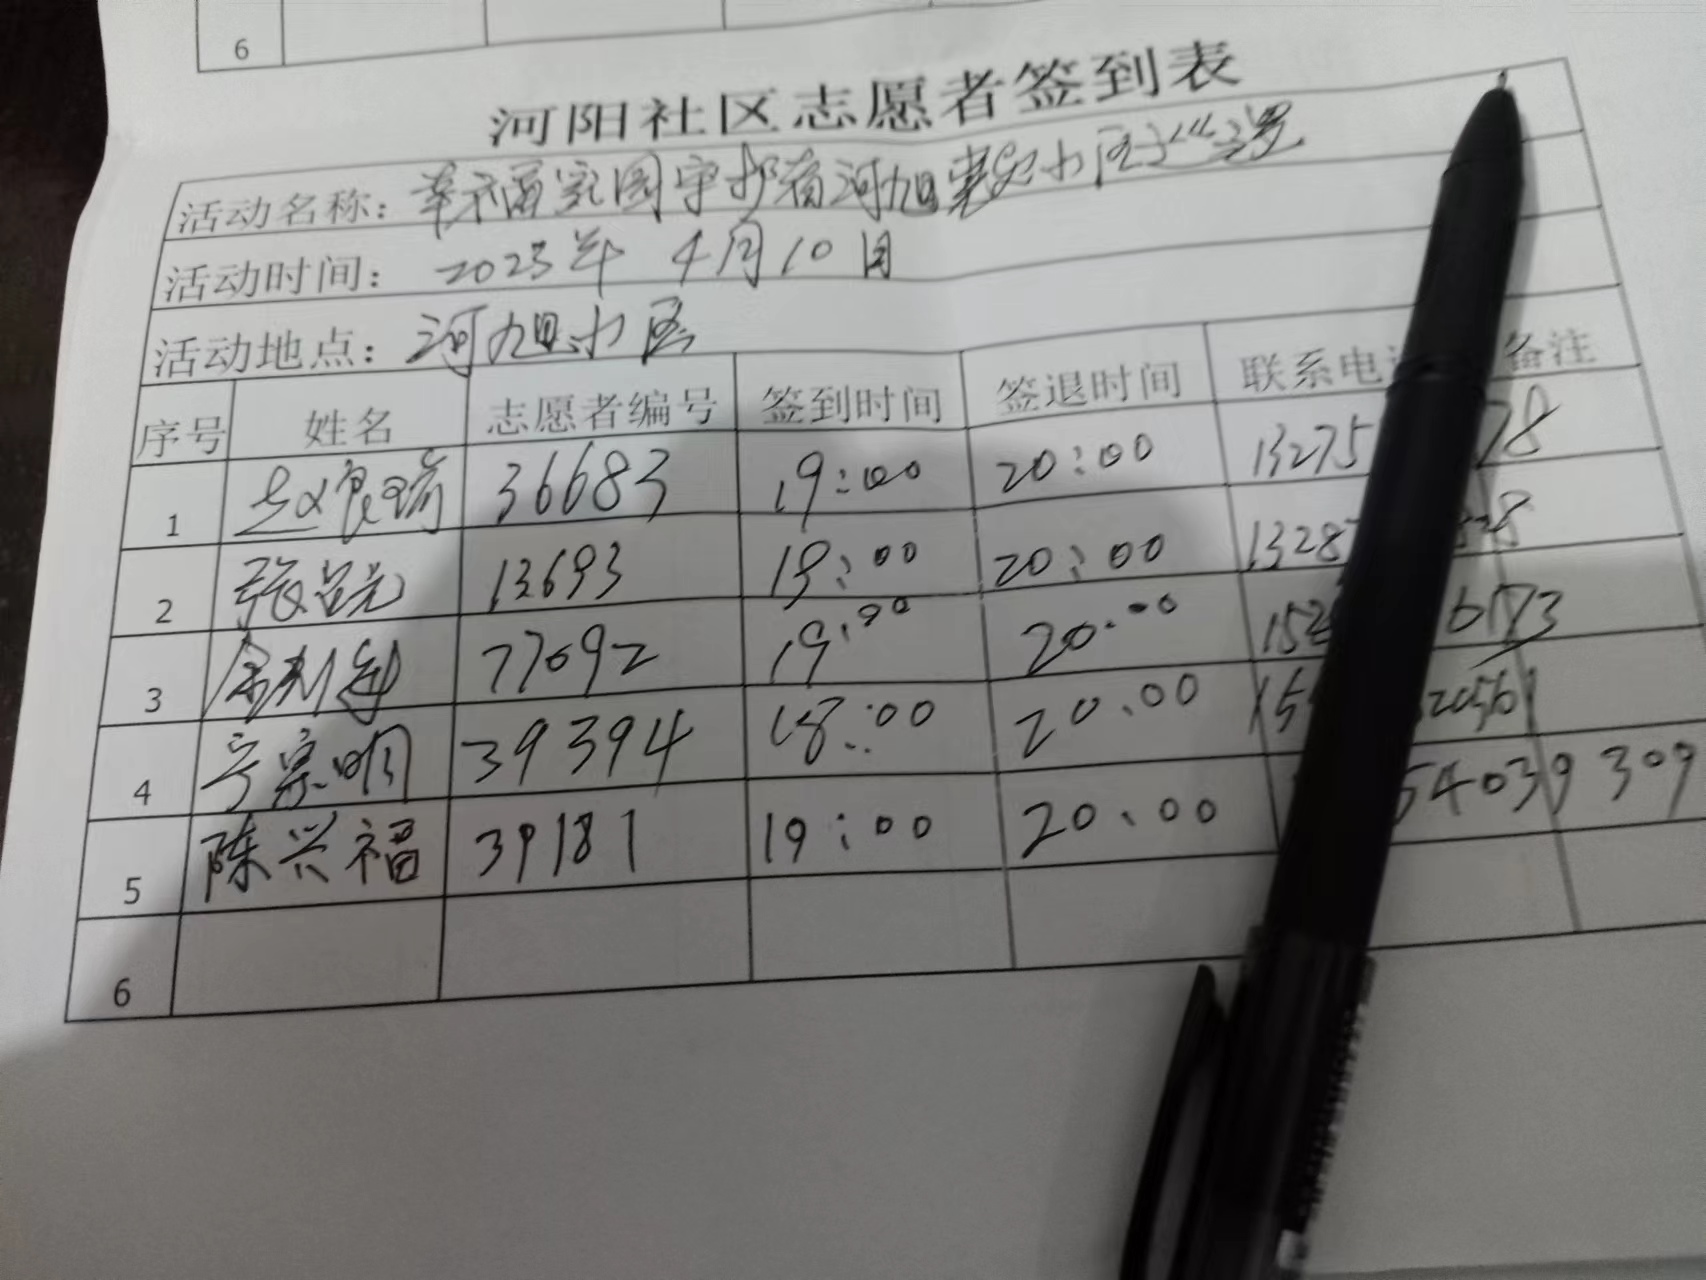 6
河阳社区志愿者签到表
活动名称: 幸福家园守护者河旭小区
活动时间: 2023年 4月10日
活动地点: 河旭小区
序号 姓名 志愿者编号 签到时间 签退时间 联系电 备注
1 赵良瑞 36683 19:00 20:00 13275 78
2 张 13693 19:00 20:00 1328
3 77092 19:00 20:00 152 6173
4 宗明 39394 18:00 20:00 15 20561
5 陈兴福 39181 19:00 20:00 54039309
6